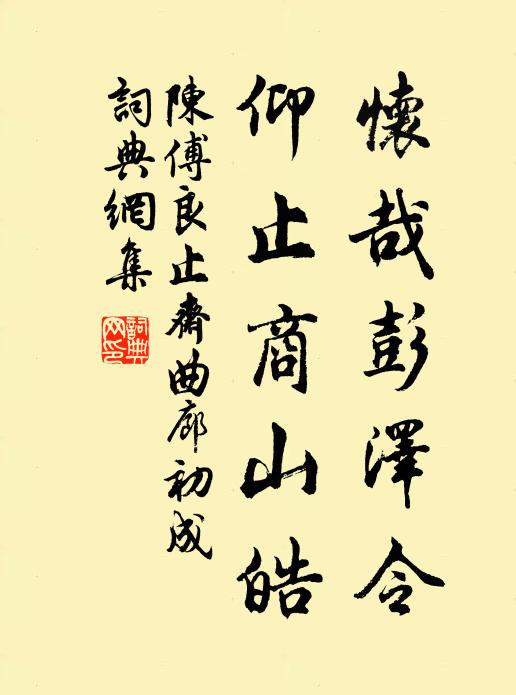 懷哉彭澤令
仰止商山皓
陳傅良止齋曲廊初成
詞典網集
詞典網印